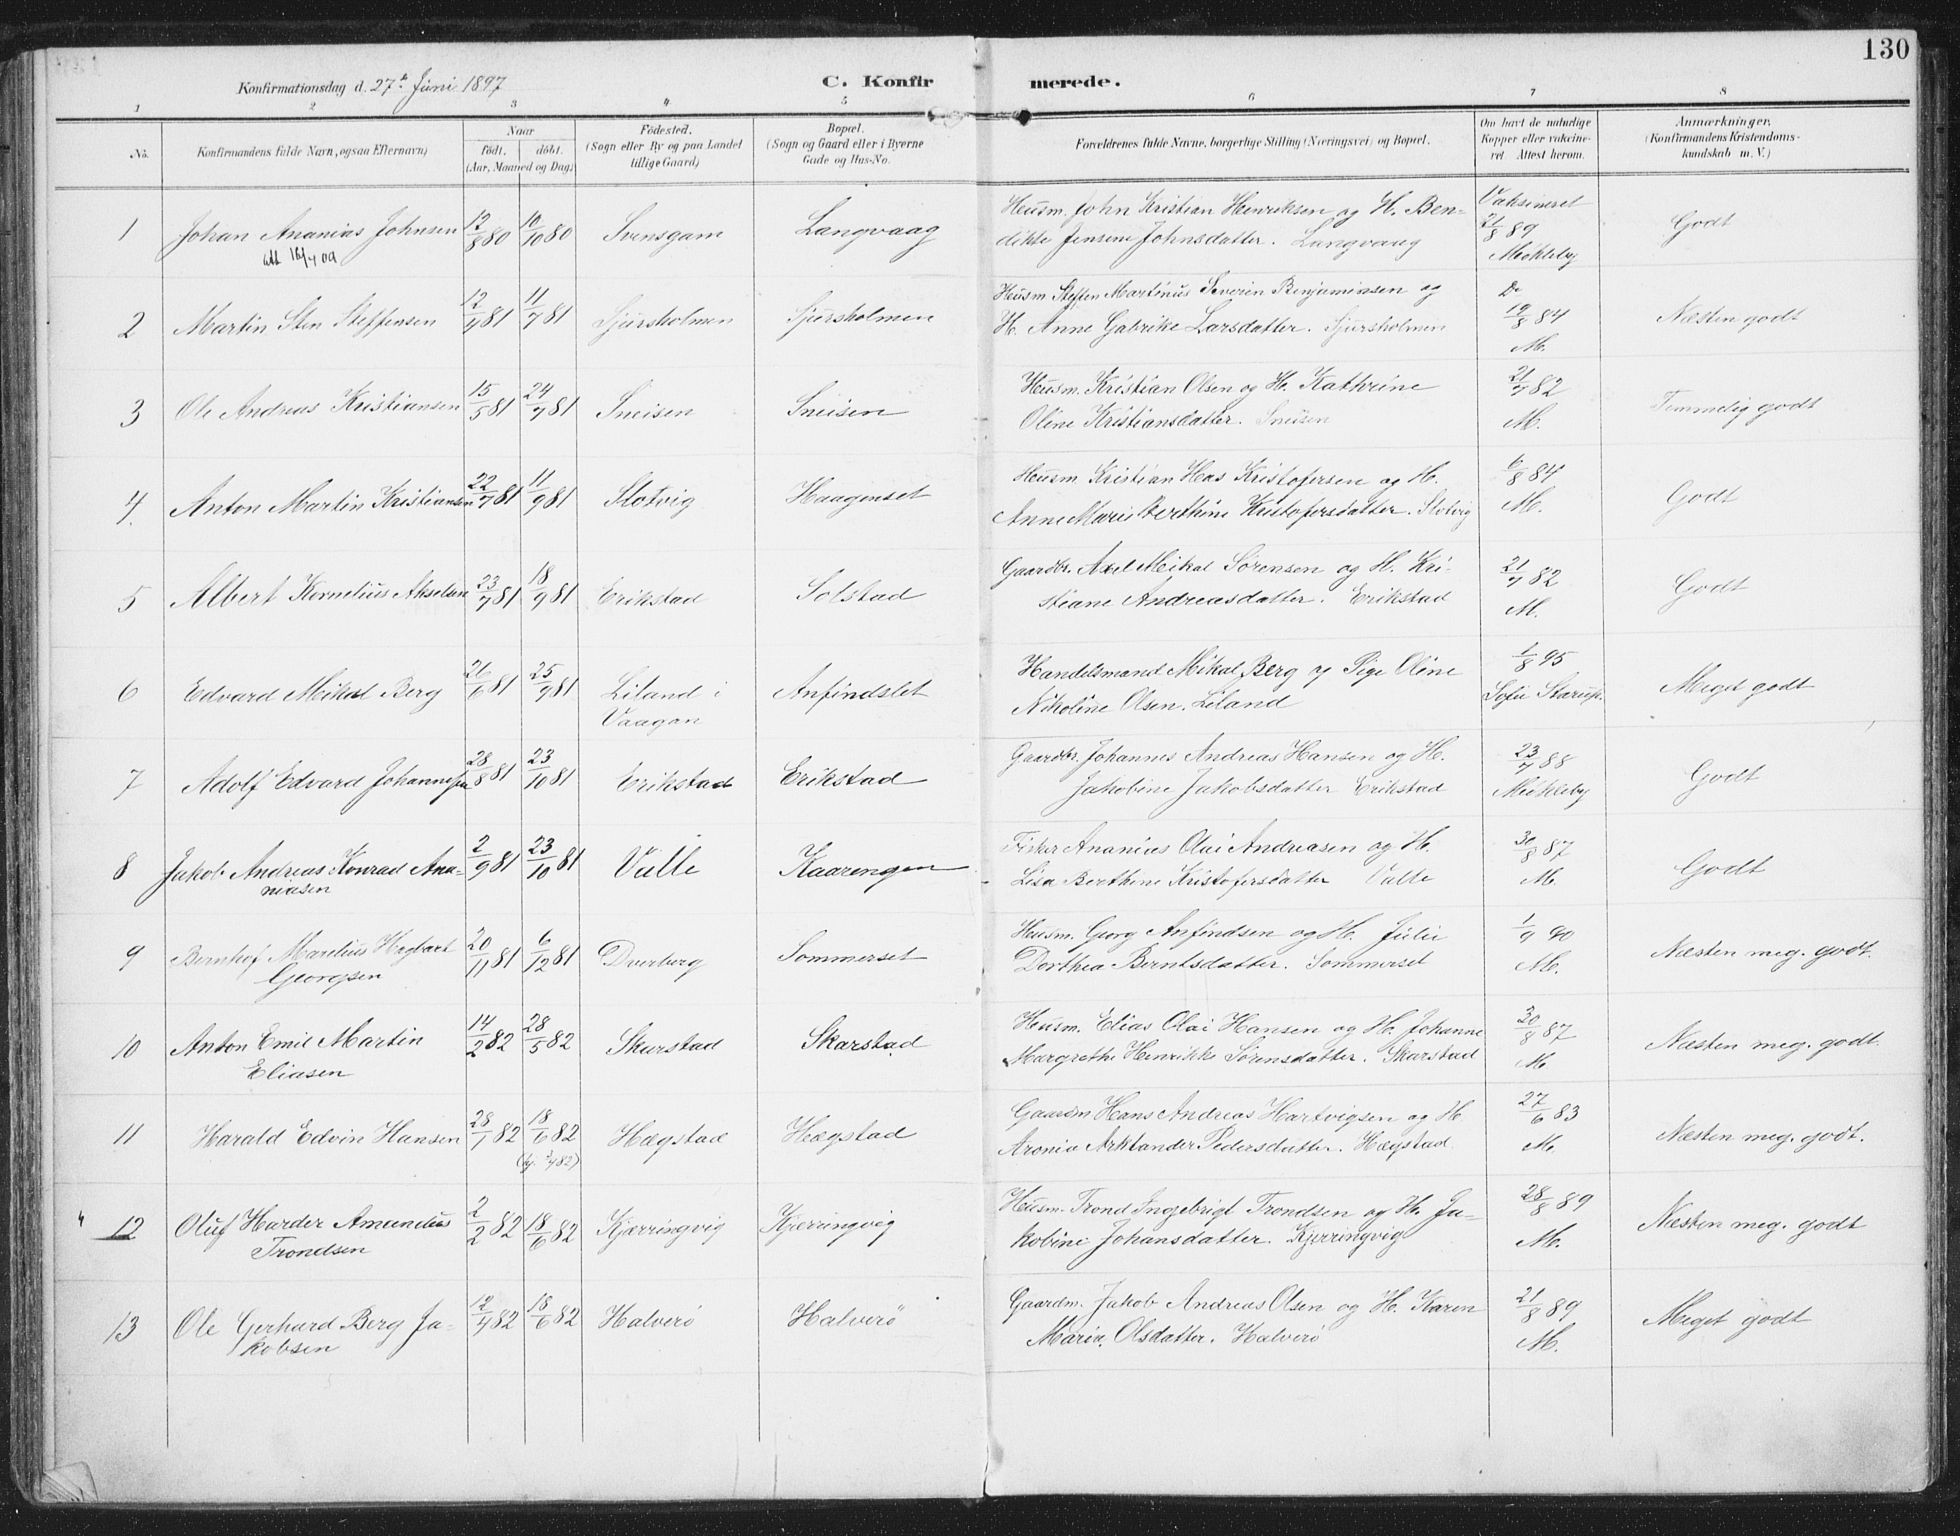 130
Konfirmationsdag d. 27de Juni 1897
C. Konfirmerede.
1 2 3 4 5 6 7 8
No.
Konfirmandens fulde Navn, ogsaa Efternavn)
Naar
födt. döbt.
(Aar, Maaned og Dag)
Födested.
(Sogn eller By og paa Landet
tillige Gaard)
Bopæl.
(Sogn og Gaard eller i Byerne
Gade og Hus-No.
Forældrenes fulde Navne, borgerlige Stilling (Næringsvei) og Bopæl.
Om havt de naturlige
Kopper eller vakcine-
ret. Attest herom.
Anmærkninger,
(Konfirmandens Kristendoms-
kundskab m. V.)
1 Johan Ananias Johnsen 12/8 80 10/10 80 Svensgam Langvaag
Husm. John Kristian Henriksen og H. Ben-
dikte Jensine Johnsdatter. Langvaag
Vaksineret
21/8 89
Meckleby
Godt
2 Martin Sten Steffensen 12/4 81 11/7 81 Sjursholmen Sjursholmen
Husm. Steffen Martinus Severin Benjaminsen og
H. Anne Gabrike Larsdatter. Sjursholmen
Do
19/8 84
M.
Næsten godt
3 Ole Andreas Kristiansen 15/5 81 24/7 81 Sneisen Sneisen
Husm. Kristian Olsen og H. Kathrine
Oline Kristiansdatter. Sneisen
21/7 82
M.
Temmelig godt
4. Anton Martin Kristiansen 22/7 81 11/9 81 Slotvig Haagenset
Husm Kristian Has Kristofersen og H.
Anne Marie Berthine Kristofersdatter. Slotvig
6/8 84
M.
Godt
5 Albert Kornelius Akselsen 23/7 81 18/9 81 Erikstad Solstad
Gaardbr. Axel Meikal Sörensen og H. Kri-
stiane Andreasdatter. Erikstad
21/7 82
M.
Godt
6 Edvard Mikal Berg 26/6 81 25/9 81 Liland i
Vaagan
Anfindslet
Handelsmand Mikal Berg og Pige Oline
Nikoline Olsen. Liland
1/8 95
Sofie Starup.
Meget godt
7 Adolf Edvard Johannessen 28/8 81 23/10 81 Erikstad Erikstad
Gaardbr. Johannes Andreas Hansen og H.
Jakobine Jakobsdatter Erikstad
23/7 88
Meckleby
Godt
8 Jakob Andreas Konrad Ana-
niasen
2/9 81 23/10 81 Valle Kaaringen
Fisker Ananias Olai Andreasen og H.
Lisa Berthine Kristofersdatter Valle
30/8 87
M.
Godt
9 Bernhof Marelius Hagbart
Georgsen
20/11 81 6/12 81 Dverberg Sommerset
Husm. Georg Anfindsen og H. Julie
Dorthea Berntsdatter. Sommerset
1/9 90
M.
Næsten meg. godt.
10 Anton Emil Martin
Eliasen
14/2 82 28/5 82 Skarstad Skarstad
Husm. Elias Olai Hansen og H. Johanne
Margrethe Henrikke Sörensdatter. Skarstad
30/8 87
M
Næsten meg. godt.
11 Harald Edvin Hansen 28/1 82 18/6 82 Hægstad Hægstad
Gaardm Hans Andreas Hartvigsen og H.
Aronia Arktander Pedersdatter. Hægstad
27/6 83
M.
Næsten meg. godt.
12 Oluf Harder Amandus
Trondsen
2/2 82 18/6 82 Kjærringvig Kjærringvig
Husm. Trond Ingebrigt Trondsen og H. Ja-
kobine Johansdatter. Kjærringvig
28/8 89
M.
Næsten meg. godt
13 Ole Gerhard Berg Ja-
kobsen
12/4 82 18/6 82 Halverö Halverö
Gaardm. Jakob Andreas Olsen og H. Karen
Maria Olsdatter. Halverö
21/8 89
M.
Meget godt